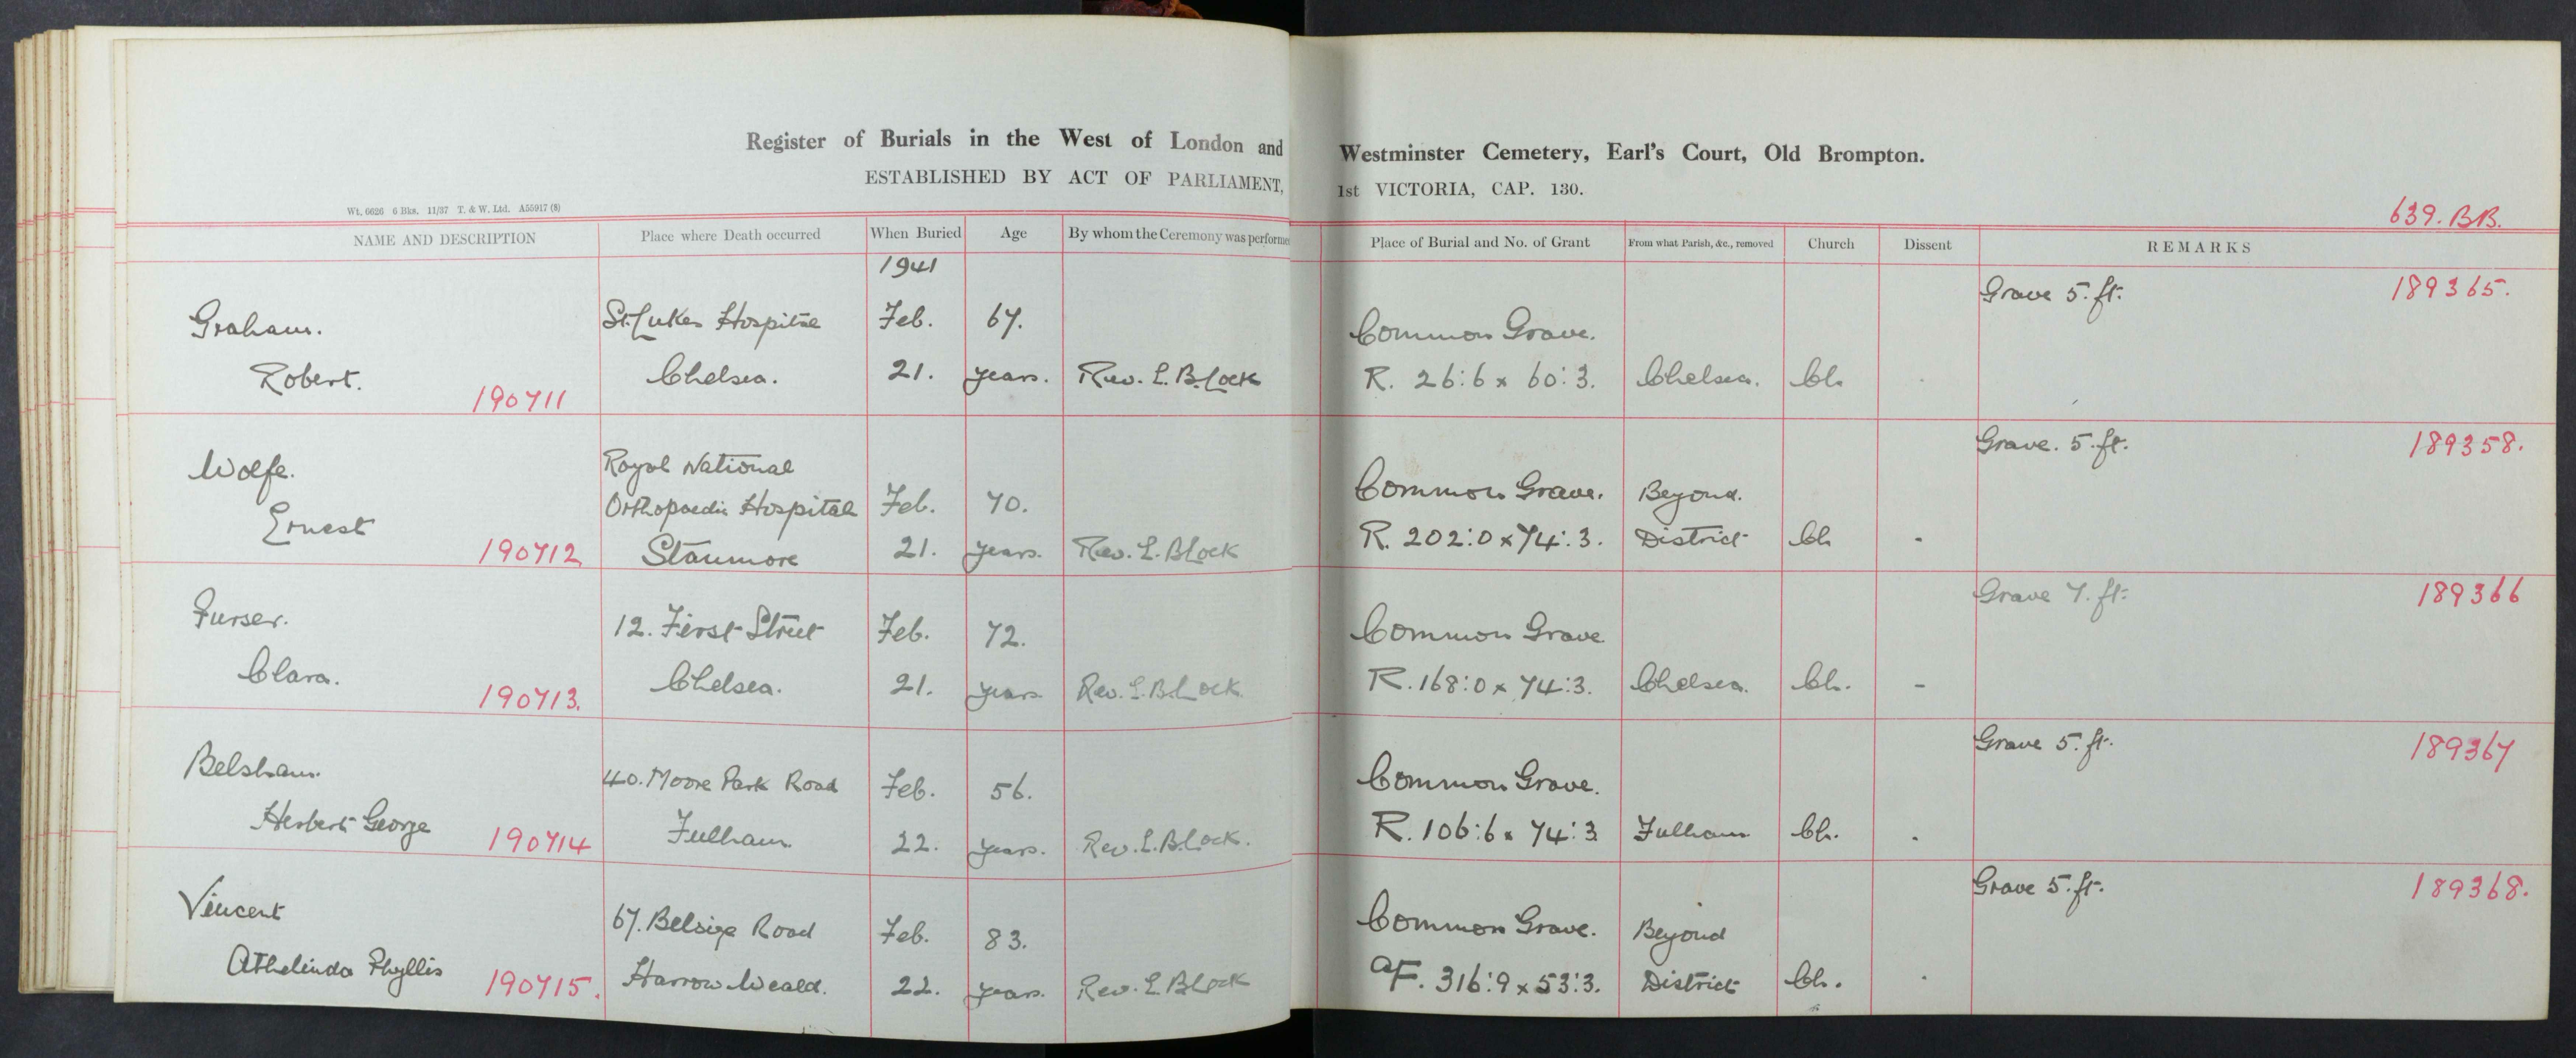 Register of Burials in the West of London and Westminster Cemetery, Earl's Court, Old Brompton.
ESTABLISHED BY ACT OF PARLIAMENT, 1st VICTORIA, CAP. 130.
Wt. 6626 6 Bks. 11/37 T. & W. Ltd. A55917 (8)
639. BB.
NAME AND DESCRIPTION Place where Death occurred When Buried Age By whom the Ceremony was performe Place of Burial and No. of Grant From what Parish, &c., removed Church Dissent REMARKS
1941
Grave 5. ft. 189365.
Graham. St. Lukes Hospital Feb. 67. Common Grave.
Robert. Chelsea. 21. years. Rev. L. B. Lock R. 26:6 x 60:3. Chelsea. Ch.
190711
Grave. 5. ft. 189358.
Wolfe. Royal National
Orthopaedic Hospital Feb. 70. Common Grave. Beyond.
Ernest Stanmore 21. years. Rev. L. B Lock R. 202:0 x 74:3. District Ch -
190712
Grave 7. ft. 189366
Furser. 12. First Street Feb. 72. Common Grave.
Clara. Chelsea. 21. years Rev. L. B. Lock. R. 168:0 x 74:3. Chelsea. Ch. -
190713.
Grave 5. ft. 189367
Belsham. 40. Moore Park Road Feb. 56. Common Grave.
Herbert George Fulham. 22. years. Rev. L. B. Lock. R. 106:6 x 74:3 Fulham Ch. .
190714
Grave 5. ft. 189368.
Vincent 67. Belsize Road Feb. 83. Common Grave. Beyond
Athelinda Phyllis Harrow Weald. 22. years. Rev. L B Lock aF. 316:9 x 53:3. District Ch. .
190715.